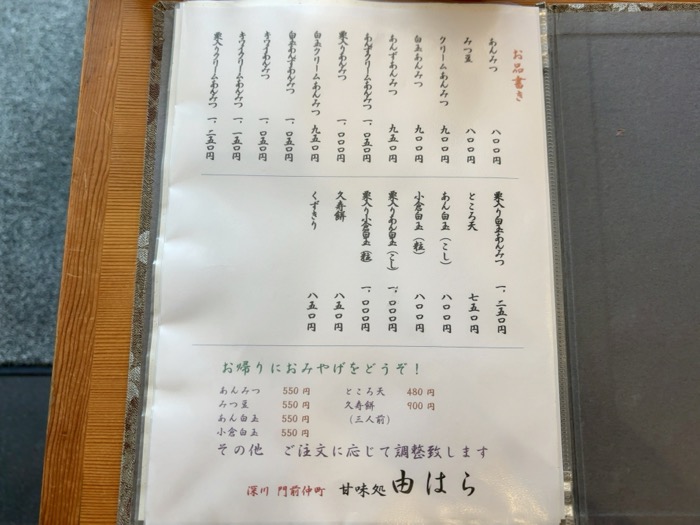 お品書き
あんみつ 八〇〇円
みつ豆 八〇〇円
クリームあんみつ 九〇〇円
白玉あんみつ 九〇〇円
あんずあんみつ 九五〇円
あんずクリームあんみつ 一、〇五〇円
栗入りあんみつ 一、〇〇〇円
白玉クリームあんみつ 九五〇円
白玉あんずあんみつ 一、〇五〇円
キウイあんみつ 一、〇五〇円
キウイクリームあんみつ 一、一五〇円
栗入りクリームあんみつ 一、二五〇円
栗入り白玉あんみつ 一、二五〇円
ところ天 七五〇円
あん白玉(こし) 八〇〇円
小倉白玉(粒) 八〇〇円
栗入りあん白玉(こし) 一、〇〇〇円
栗入り小倉白玉(粒) 一、〇〇〇円
久寿餅 八五〇円
くずきり 八五〇円
お帰りにおみやげをどうぞ!
あんみつ 550円
みつ豆 550円
あん白玉 550円
小倉白玉 550円
ところ天 480円
久寿餅 900円
(三人前)
その他 ご注文に応じて調整致します
深川 門前仲町 甘味処 由はら